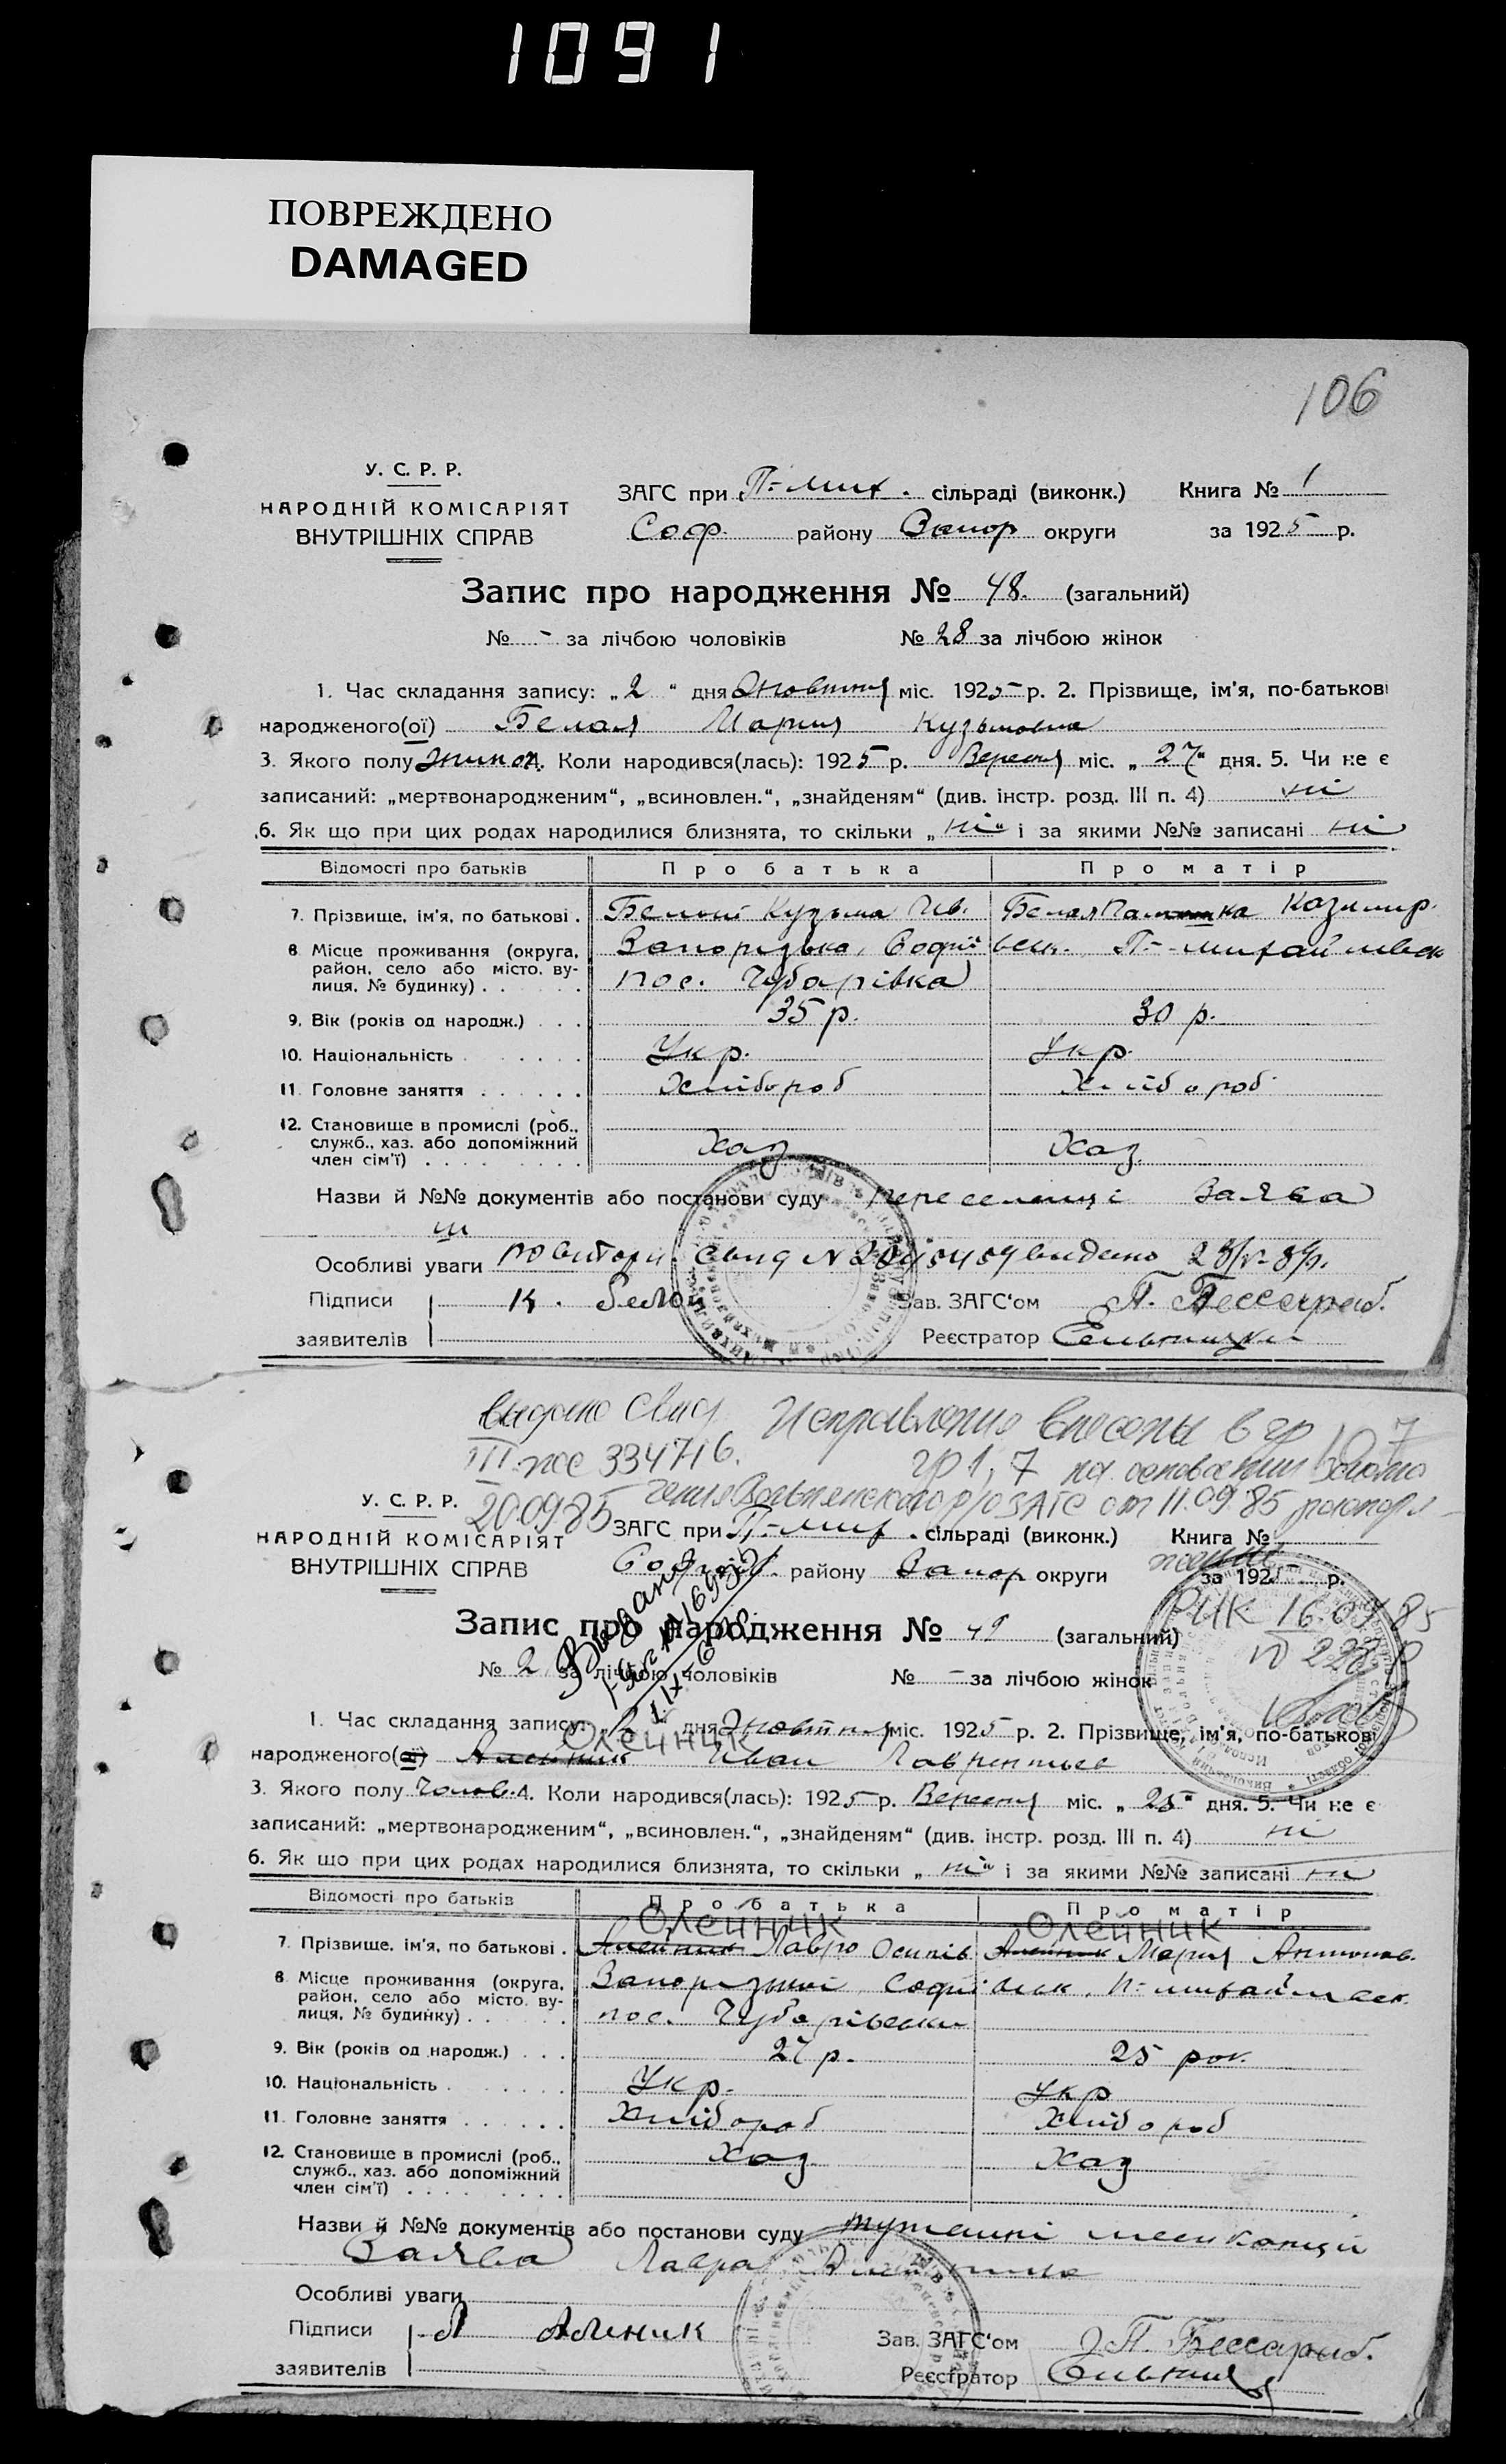 1091
ПОВРЕЖДЕНО
DAMAGED
106
У. С. Р. Р.
НАРОДНІЙ КОМІСАРІЯТ
ВНУТРІШНІХ СПРАВ
ЗАГС при П.-Мих. сільраді (виконк.) Книга № 1
Соф. району Запор округи за 1925 р.
Запис про народження № 48. (загальний)
№ - за лічбою чоловіків № 28 за лічбою жінок
1. Час складання запису: „2" дня Жовтня міс. 1925 р. 2. Прізвище, ім'я, по-батькові
народженого(ої) Белая Мария Кузьмовна
3. Якого полу жиноч. 4. Коли народився(лась): 1925 р. Вересня міс. „27" дня. 5. Чи не є
записаний: „мертвонародженим", „всиновлен.", „знайденям" (див. інстр. розд. III п. 4) ні
6. Як що при цих родах народилися близнята, то скільки „ні" і за якими №№ записані ні
Відомості про батьків Про батька Про матір
7. Прізвище, ім'я, по батькові . Белый Кузьма Ив. Белая Казимир.
8 Місце проживання (округа, район, село або місто, вулиця, № будинку) . Запорізька, Софиївськ. П.-Михайлівськ
пос. Чубарівка
9. Вік (років од народж.) . . . 35 р. 30 р.
10. Національність Укр. Укр.
11. Головне заняття Хлібороб Хлібороб
12. Становище в промислі (роб., служб., хаз. або допоміжний член сім'ї) Хаз Хаз.
Назви й №№ документів або постанови суду переселенці Заява
Особливі уваги повторн. свид N видано
Підписи К. Белой Зав. ЗАГС'ом П. Бессараб.
заявителів Реєстратор
выдано Свид. Исправления внесены в гр
III-ЖС 334716. гр 1, 7 на основании заключения
20.09.85 Вольнянского р/о ЗАГС от 11.09.85
У. С. Р. Р.
НАРОДНІЙ КОМІСАРІЯТ
ВНУТРІШНІХ СПРАВ
ЗАГС при П.-Мих. сільраді (виконк.) Книга №
Софиїв. району Запор округи за 1925 р.
РИК 16.09.85
Запис про народження № 49 (загальний)
№ 2 за лічбою чоловіків № - за лічбою жінок
1. Час складання запису: дня Жовтня міс. 1925 р. 2. Прізвище, ім'я, по-батькові
Олейник
народженого(ої) Алейник Иван Лаврентиев
3. Якого полу Чолов. 4. Коли народився(лась): 1925 р. Вересня міс. „25" дня. 5. Чи не є
записаний: „мертвонародженим", „всиновлен.", „знайденям" (див. інстр. розд. III п. 4) ні
6. Як що при цих родах народилися близнята, то скільки „ні" і за якими №№ записані ні
Відомості про батьків Про батька Про матір
Олейник Олейник
7. Прізвище, ім'я, по батькові . Алейник Лавро Осипів Алейник Мария Антонов.
8 Місце проживання (округа, район, село або місто, вулиця, № будинку) . Запорізької Софиївськ, П.-Михайлівськ.
пос. Чубарівськ
9. Вік (років од народж.) . . . 27 р. 25 рок.
10. Національність Укр. Укр
11. Головне заняття Хлібороб Хлібороб
12. Становище в промислі (роб., служб., хаз. або допоміжний член сім'ї) Хаз. Хаз
Назви й №№ документів або постанови суду тутешні мешканци
Заява Лавра
Особливі уваги
Підписи Л Аленик Зав. ЗАГС'ом П. Бессараб.
заявителів Реєстратор